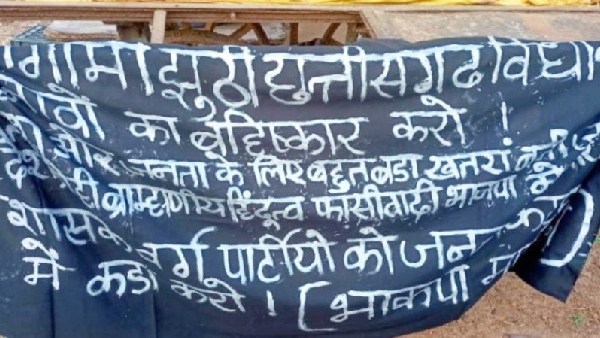 गामी झुठी छत्तीसगढ विधा
वों का बहिष्कार करो !
और जनता के लिए बहुत बडा खतरा
ब्राम्हाणीय हिंदूत्व फासीवादी भाजपा
शासक वर्ग पार्टीयो को जन
में कडा करो ! (भाकपा